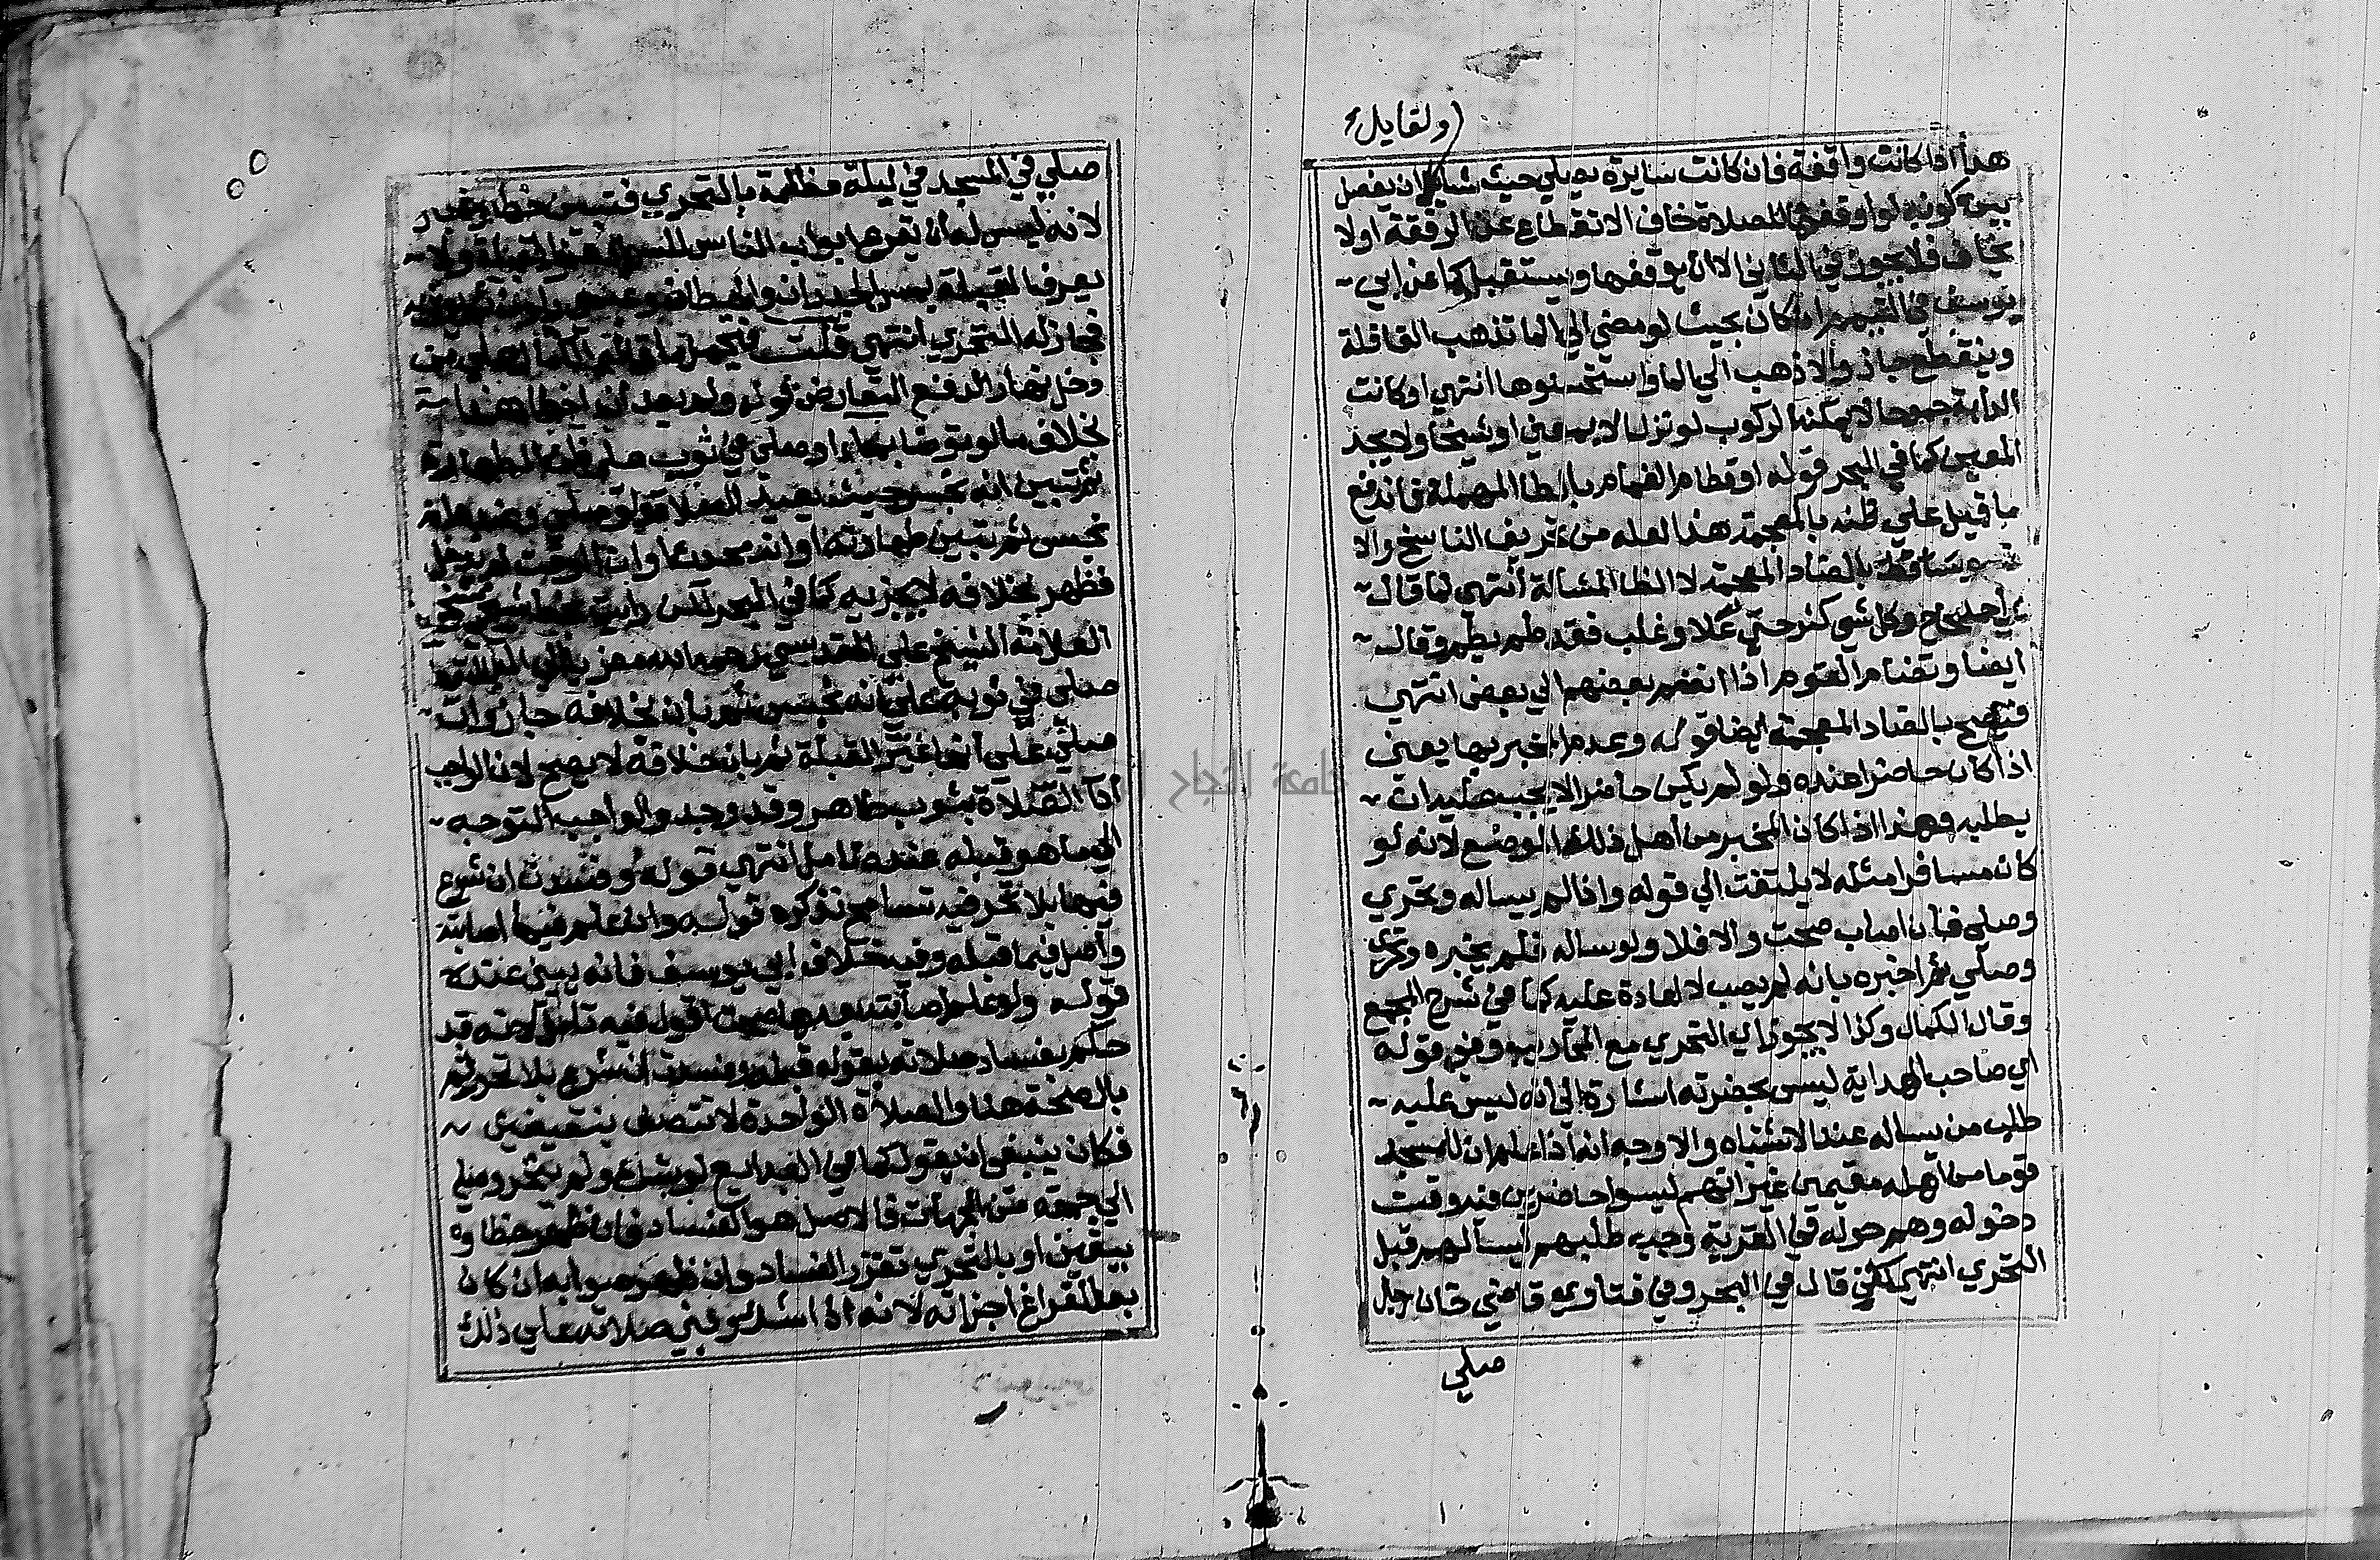 ولقايل
هذا اذا كانت واقفة فان كانت سايرة يصلي حيث شا ان يفصل
بين كونه لو اوقفها للصلاة خاف الانقطاع عن الرفقة اولا
يخاف فلا يجوز في الثاني الا ان يوقفها ويستقبل كما عن ابي
يوسف في التيمم ان كان بحيث لو مضي الي الما تذهب القافلة
وينقطع جاز والا ذهب الي الما واستحسنوها انتهي او كانت
الدابة جموحا لا يمكنه الركوب لو نزل الا بمعين او شيخا ولا يجد
المعين كما في البحر قوله او قطام الفمام بالطا المهملة فاندفع
ما قيل علي ظنه بالمعجمة هذا لعله من تحريف الناسخ والا
بالضاد المعجمة لا الظا المشالة انتهي لما قال
وكل شي كثر حتي علا وغلب فقد طم يطم وقال
ايضا وتضام القوم اذا انضم بعضهم الي بعض انتهي
فيصح بالضاد المعجمة ايضا قوله وعدم المخبر بها يعني
اذا كان حاضرا عنده ولو لم يكن حاضرا لا يجب عليه ان
يطلبه وهذا اذا كان المخبر من اهل ذلك الموضع لانه لو
كان مسافرا مثله لا يلتفت الي قوله واذا لم يساله وتحري
وصلي فان اصاب صحت والا فلا ولو ساله فلم يخبره وتحري
وصلي ثم اخبره بانه لم يصب لا اعادة عليه كما في شرح المجمع
وقال الكمال وكذا لا يجوز اي التحري مع المحاريب وفي قوله
اي صاحب الهداية ليس بحضرته اشارة الي انه ليس عليه
طلب من يساله عند الاشتباه والاوجه انه اذا علم ان للمسجد
قوما من اهله مقيمين غير انهم ليسوا حاضرين فيه وقت
دخوله وهم حوله في القرية وجب طلبهم ليسالهم قبل
التحري انتهي لكن قال في البحر وفي فتاوي قاضي خان رجل
صلي
صلي في المسجد في ليلة مظلمة بالتحري فتبين خطاؤه
لانه ليس له ان يقرع ابواب الناس للسوال عن القبلة ولا
يعرف القبلة بمس الجدران والحيطان
فجاز له التحري انتهي قلت فيحمل ما قاله الكمال علي من
دخل نهارا لدفع التعارض قوله ولم يعد ان اخطا هذا
بخلاف ما لو توضا بماء او صلي في ثوب علي ظن الطهارة
ثم تبين انه نجس حيث يعيد الصلاة ولو صلي وعنده انه
نجس ثم تبين طهارته او انه محدث او ان الوقت لم يدخل
فظهر بخلافه لا يجزيه كما في البحر لكن رايت بخط شيخ شيخي
العلامة الشيخ علي المقدسي رحمه الله
صلي في ثوب علي انه نجس ثم بان بخلافه جاز وان
صلي علي انها غير القبلة ثم بان خلافه لا يصح لان الواجب
اداء الصلاة بثوب طاهر وقد وجد والواجب التوجه
الي ما هو قبله عنده تامل انتهي قوله وفسدت ان شرع
فيها بلا تحر فيه تسامح نذكره قوله وان علم فيها اصابته
واصل فيما قبله وفيه خلاف ابي يوسف فانه يبني عنده
قوله ولو علم اصابته بعدها صحت اقول فيه تامل لانه قد
حكم بفساد صلاته بقوله قبله وفسدت ان شرع بلا تحر ثم
بالصحة هنا والصلاة الواحدة لا تتصف بنقيضين
فكان ينبغي ان يقول كما في البدايع لو شك ولم يتحر وصلي
الي جهة من الجهات فالاصل هو الفساد فان ظهر خطاوه
بيقين او بالتحري تقرر الفساد وان ظهر صوابه ان كان
بعد الفراغ اجزاته لانه اذا شك وبني صلاته علي ذلك